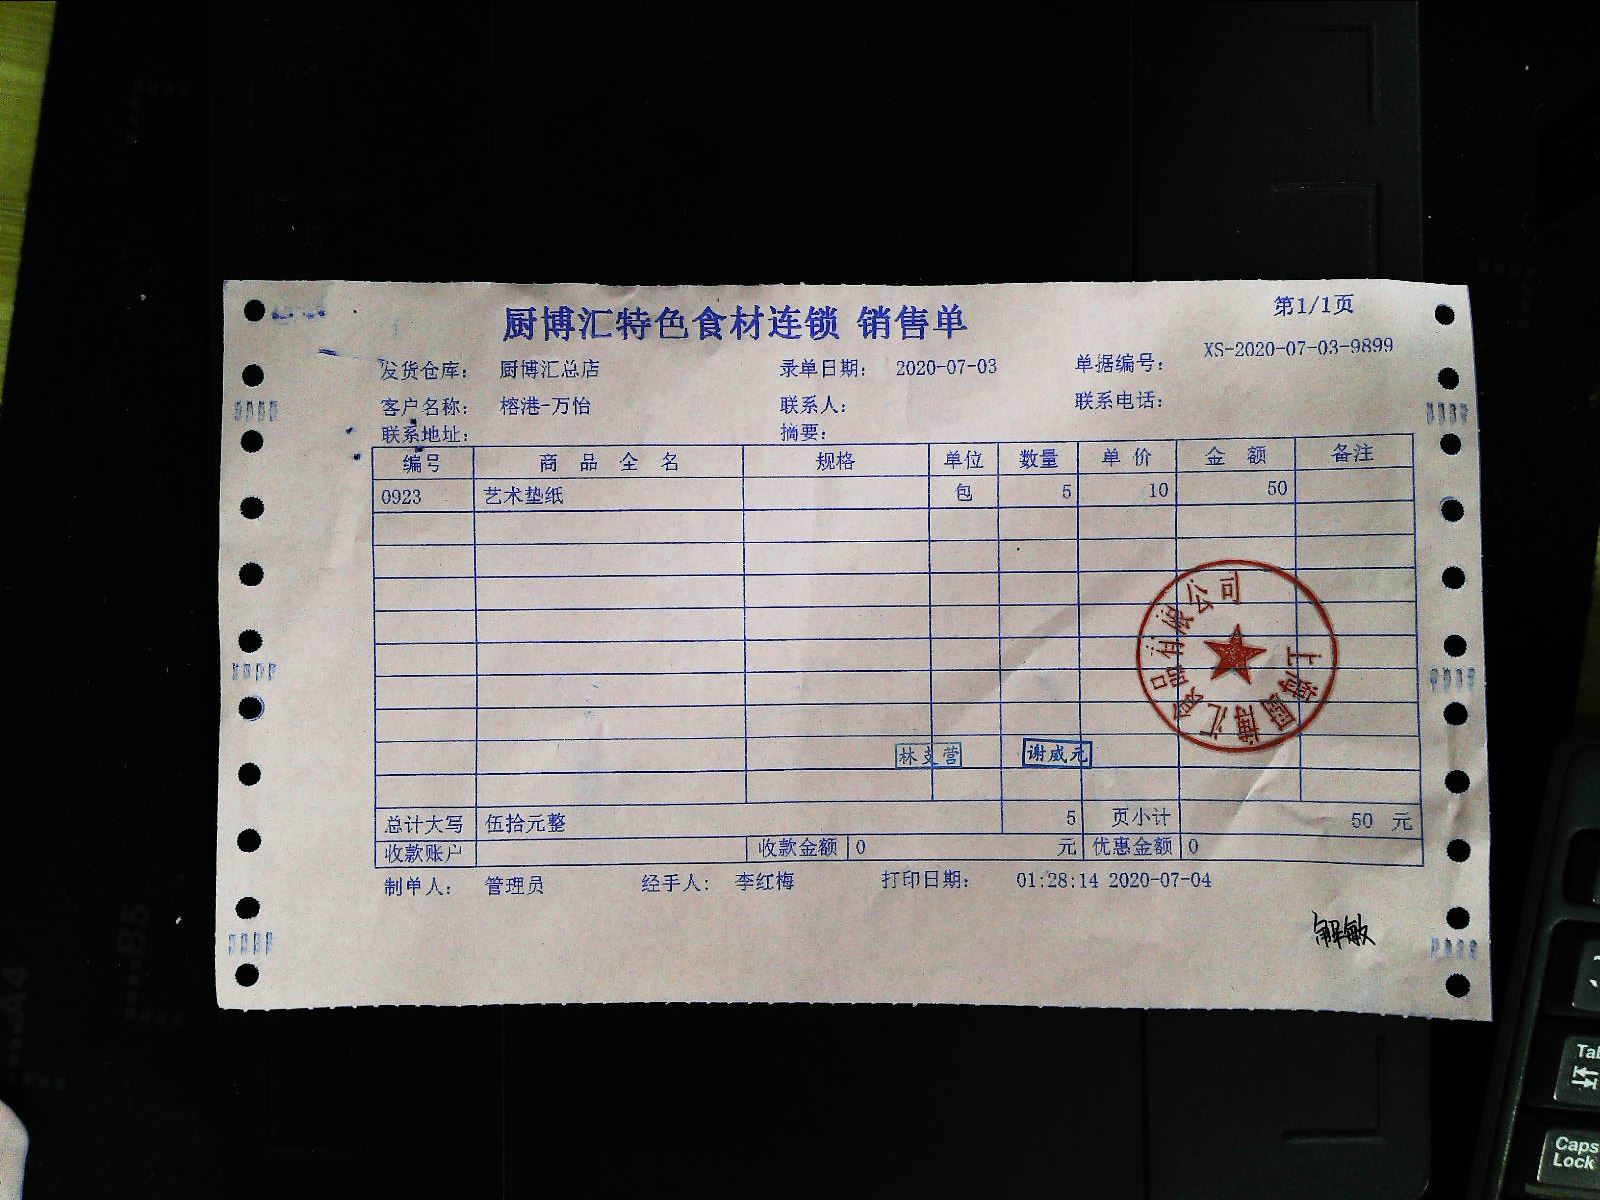 厨博汇特色食材连锁 销售单
第1/1页
发货仓库： 厨博汇总店 录单日期： 2020-07-03 单据编号： XS-2020-07-03-9899
客户名称： 榕港-万怡 联系人： 联系电话：
联系地址： 摘要：
编号 商品全名 规格 单位 数量 单价 金额 备注
0923 艺术垫纸 包 5 10 50
上海厨博汇食品有限公司
林支营 谢威元
总计大写 伍拾元整 5 页小计 50 元
收款账户 收款金额 0 元 优惠金额 0
制单人： 管理员 经手人： 李红梅 打印日期： 01:28:14 2020-07-04
解敏
A4
B5
Tab
Caps
Lock